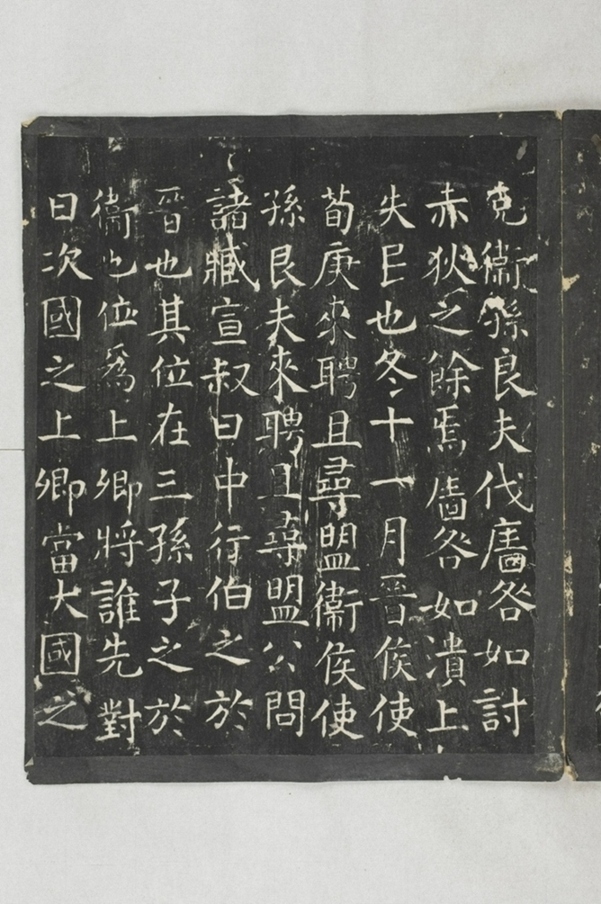 克衞孫良夫伐廧咎如討
赤狄之餘焉廧咎如潰上
失民也冬十一月晉侯使
荀庚來聘且尋盟衞侯使
孫良夫來聘且尋盟公問
諸臧宣叔曰中行伯之於
晉也其位在三孫子之於
衞也位為上卿將誰先對
曰次國之上卿當大國之